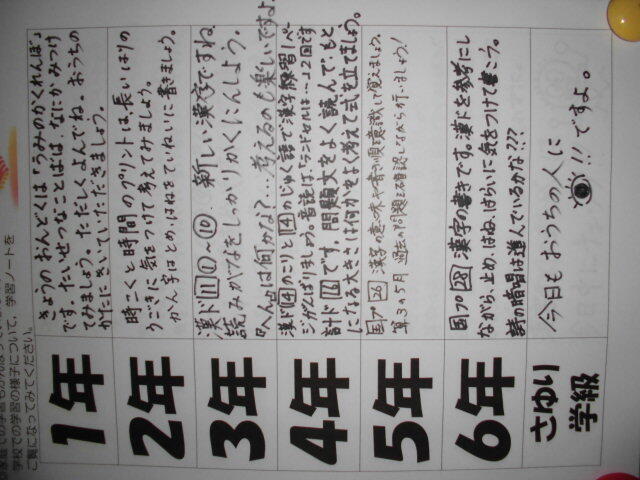 家庭での学習も
学校での学習の様子について、学習ノートを
ご覧になってみてください。
1年
きょうのおんどくは「うみのかくれんぼ」
です。たいせつなことばは、なにかみつけ
てみましょう。ただしくよんでね。おうちの
かたにきいていただきましょう。
2年
時こくと時間のプリントは、長いはりの
うごきに気をつけて考えてみましょう。
かん字はとめ、はねをていねいに書きましょう。
3年
漢ド11①~⑩ 新しい漢字ですね。
読みがなをしっかりかくにんしよう。
□は何かな?…考えるのも楽しいですよ。
4年
漢ド14のこりと14のじゅく語で漢字練習1ペー
ジがんばりましょう。音読は「ランドセルは…」2回です
計ド16です。問題文をよく読んで、もと
になる大きさは何かをよく考えて式を立てましょう。
5年
国プ26 漢字の意味や書き順も意識して覚えましょう。
算3の5月 過去の問題も確認しながら行いましょう!
6年
国プ28 漢字の書きです。漢ドを参考にし
ながら、止め、はね、はらいに気をつけて書こう。
詩の暗唱は進んでいるかな???
さゆり
学級
今日もおうちの人に
!!ですよ。